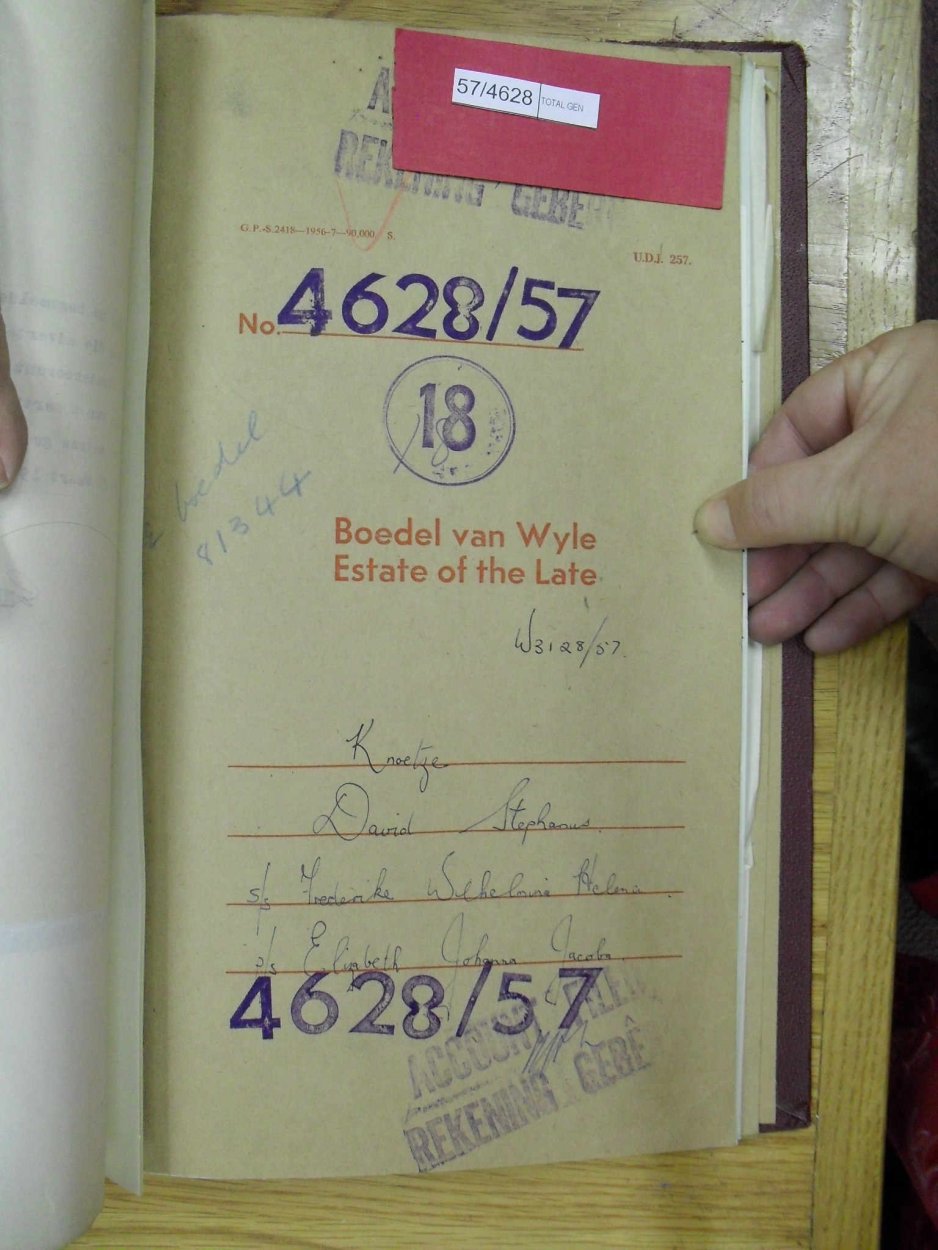 57/4628 TOTAL GEN
REKENING GEBÊ
G.P.-S.2418—1956-7—90,000 S.
U.D.J. 257.
No. 4628/57
18
boedel
81344
Boedel van Wyle
Estate of the Late
W3128/57.
Knoetze
David Stephanus.
s/s Frederike Wilhelmine Helena.
Elizabeth Johanna Jacoba.
4628/57
ACCOUNT
REKENING GEBÊ